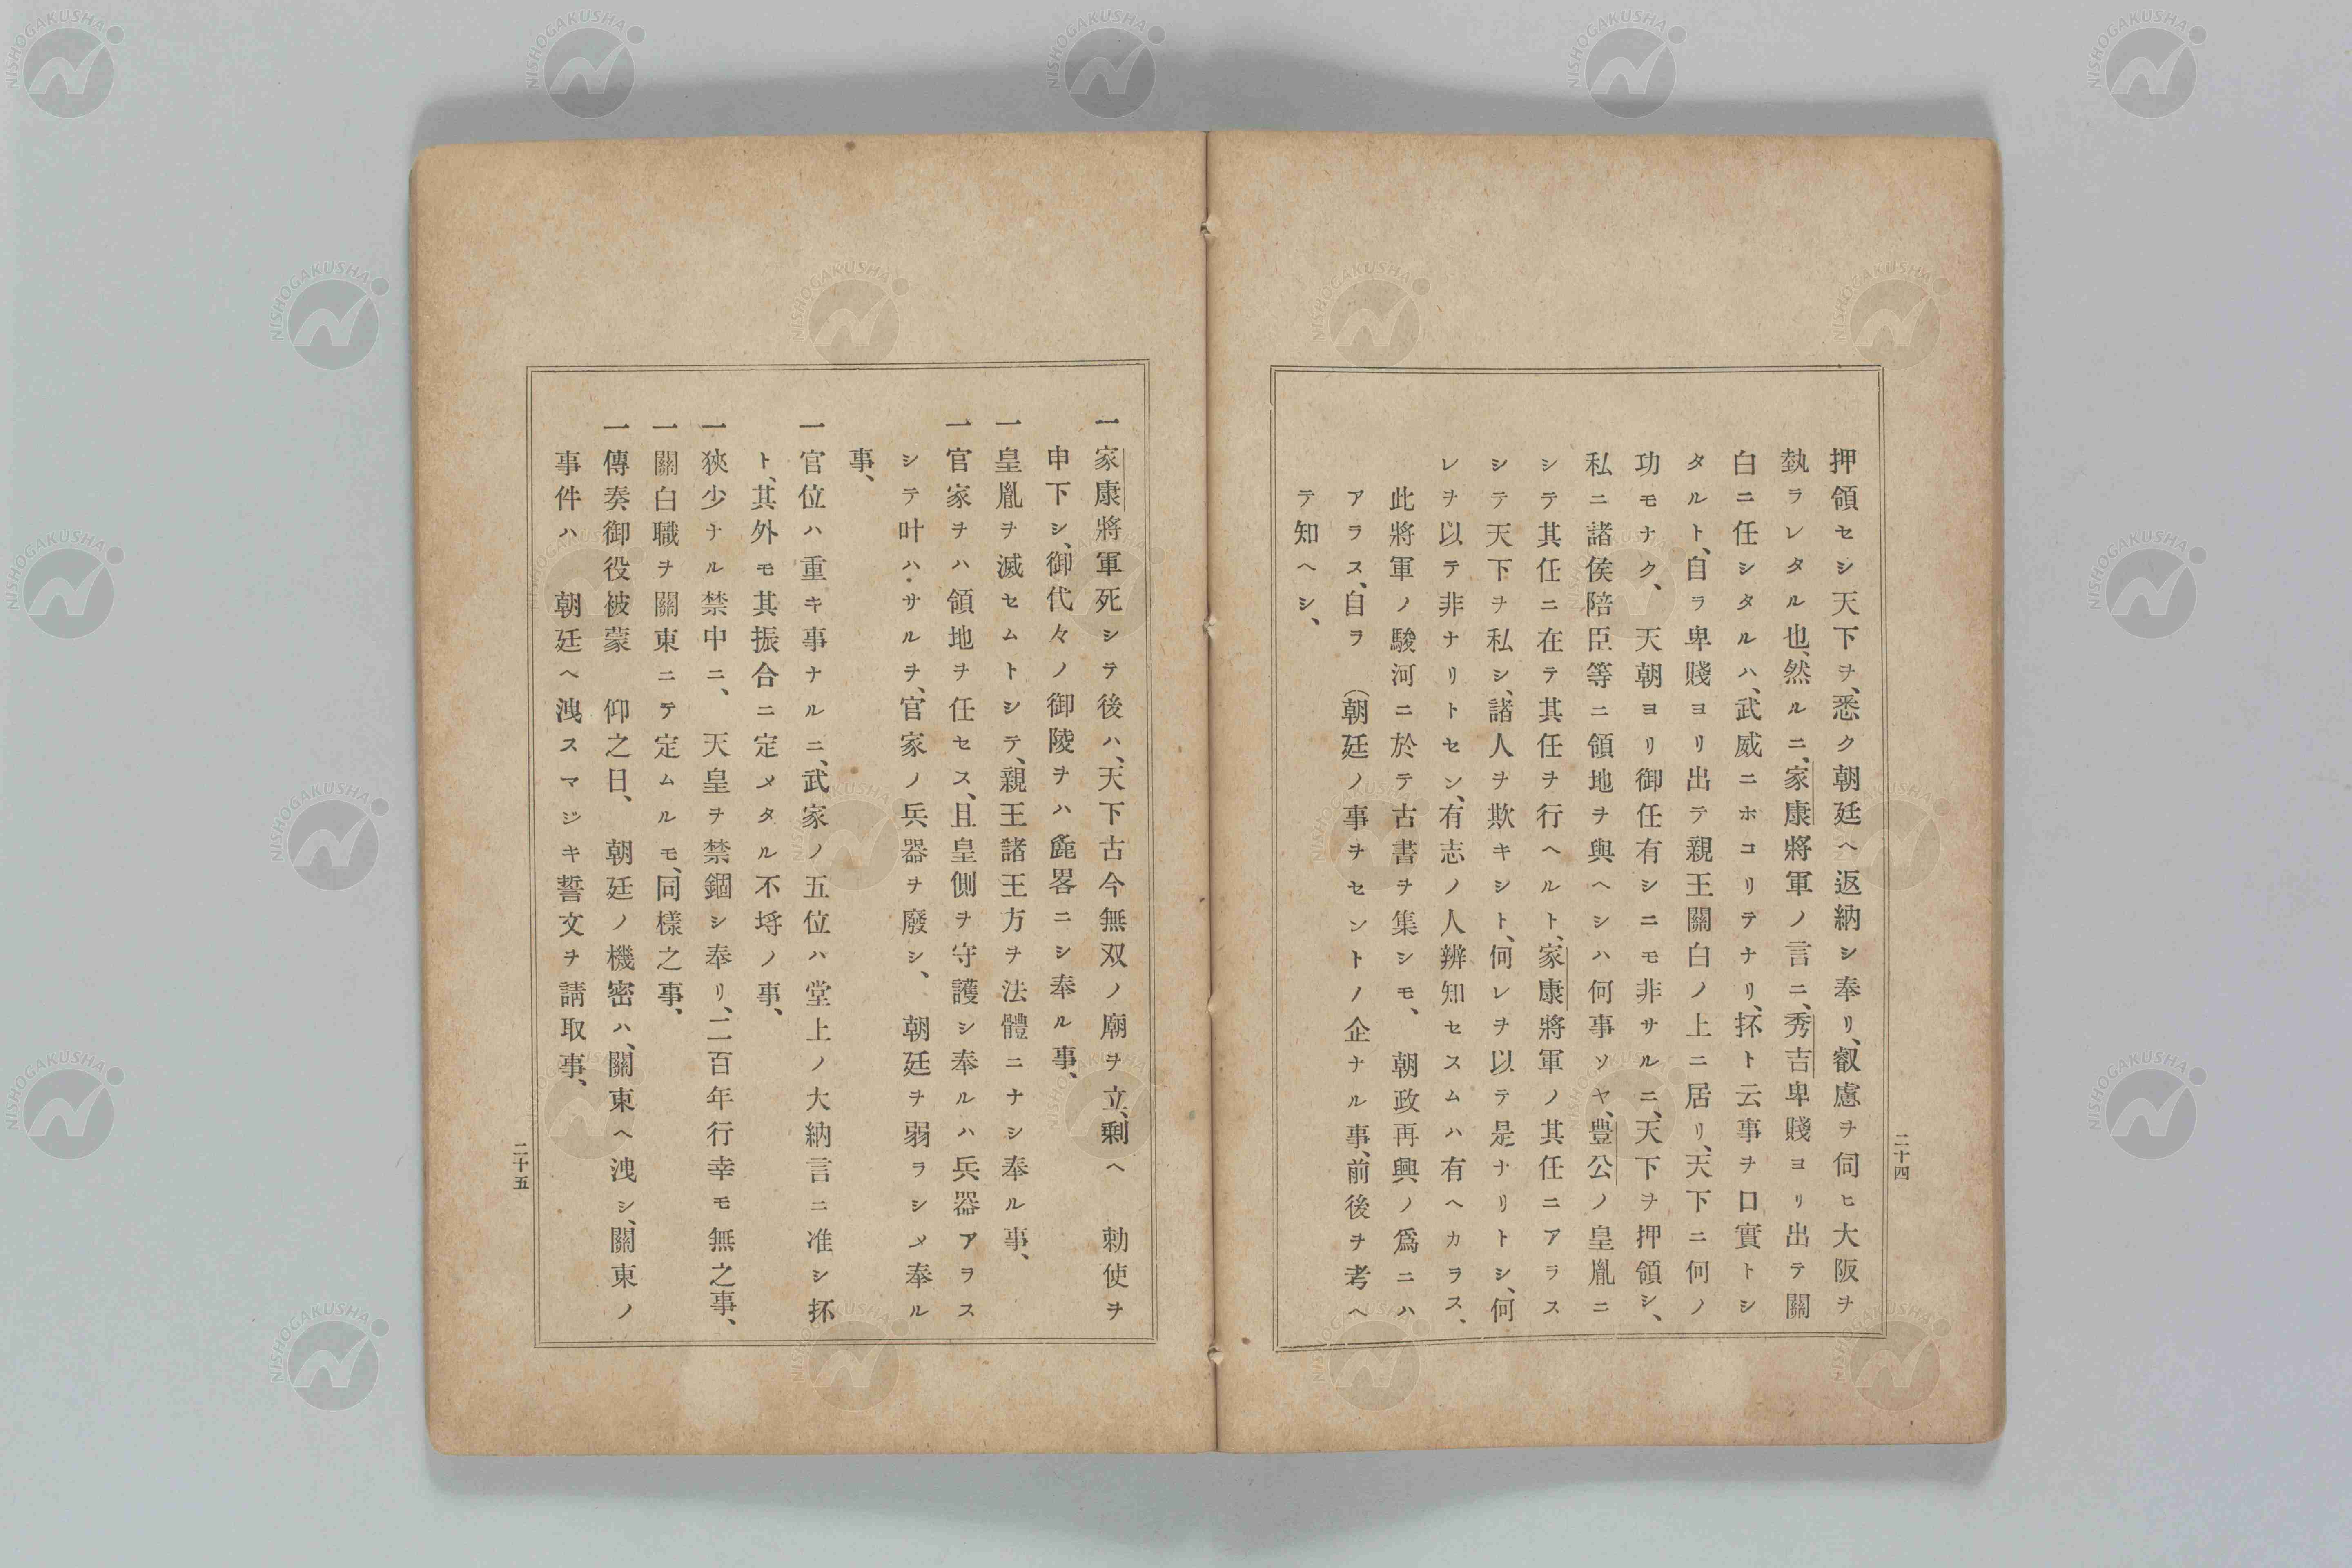 二十四
押領セシ天下ヲ、悉ク朝廷ヘ返納シ奉リ、叡慮ヲ伺ヒ大阪ヲ
執ラレタル也、然ルニ、家康將軍ノ言ニ、秀吉卑賤ヨリ出テ關
白ニ任シタルハ、武威ニホコリテナリ、抔ト云事ヲ口實トシ
タルト、自ラ卑賤ヨリ出テ親王關白ノ上ニ居リ、天下ニ何ノ
功モナク、 天朝ヨリ御任有シニモ非サルニ、天下ヲ押領シ、
私ニ諸侯陪臣等ニ領地ヲ與ヘシハ何事ソヤ、豐公ノ皇胤ニ
シテ其任ニ在テ其任ヲ行ヘルト、家康將軍ノ其任ニアラス
シテ天下ヲ私シ、諸人ヲ欺キシト、何レヲ以テ是ナリトシ、何
レヲ以テ非ナリトセン、有志ノ人辨知セスムハ有ヘカラス、
此將軍ノ駿河ニ於テ古書ヲ集シモ、 朝政再興ノ爲ニハ
アラス、自ヲ (朝廷ノ事ヲセントノ企ナル事、前後ヲ考ヘ
テ知ヘシ、
一家康將軍死シテ後ハ、天下古今無双ノ廟ヲ立、剩ヘ 勅使ヲ
申下シ、御代々ノ御陵ヲハ麁畧ニシ奉ル事、
一皇胤ヲ滅セムトシテ、親王諸王方ヲ法體ニナシ奉ル事、
一官家ヲハ領地ヲ任セス、且皇側ヲ守護シ奉ルハ兵器アラス
シテ叶ハサルヲ、官家ノ兵器ヲ廢シ、 朝廷ヲ弱ラシメ奉ル
事、
一官位ハ重キ事ナルニ、武家ノ五位ハ堂上ノ大納言ニ准シ抔
ト、其外モ其振合ニ定メタル不埒ノ事、
一狹少ナル禁中ニ、 天皇ヲ禁錮シ奉リ、二百年行幸モ無之事、
一關白職ヲ關東ニテ定ムルモ、同樣之事、
一傳奏御役被蒙 仰之日、 朝廷ノ機密ハ、關東ヘ洩シ、關東ノ
事件ハ 朝廷ヘ洩スマジキ誓文ヲ請取事、
二十五
NISHOGAKUSHA